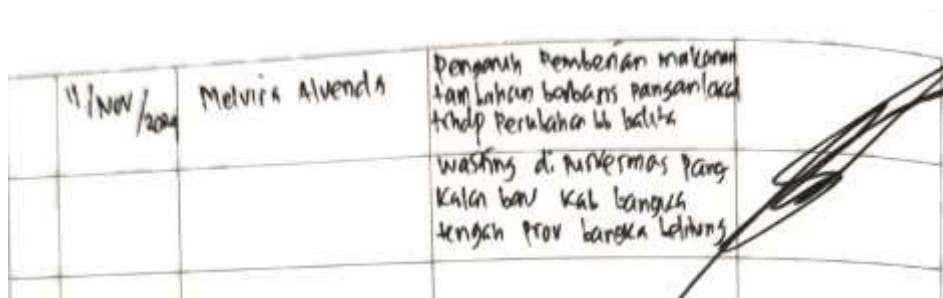 11/Nov/2024
Melvira Alvenda
Pengaruh Pemberian makanan
tambahan berbans pangan local
trhdp Perubahan bb balita
wasting di Puskermas Pang
Kalan baru Kab bangka
tengah Prov bangka belitung